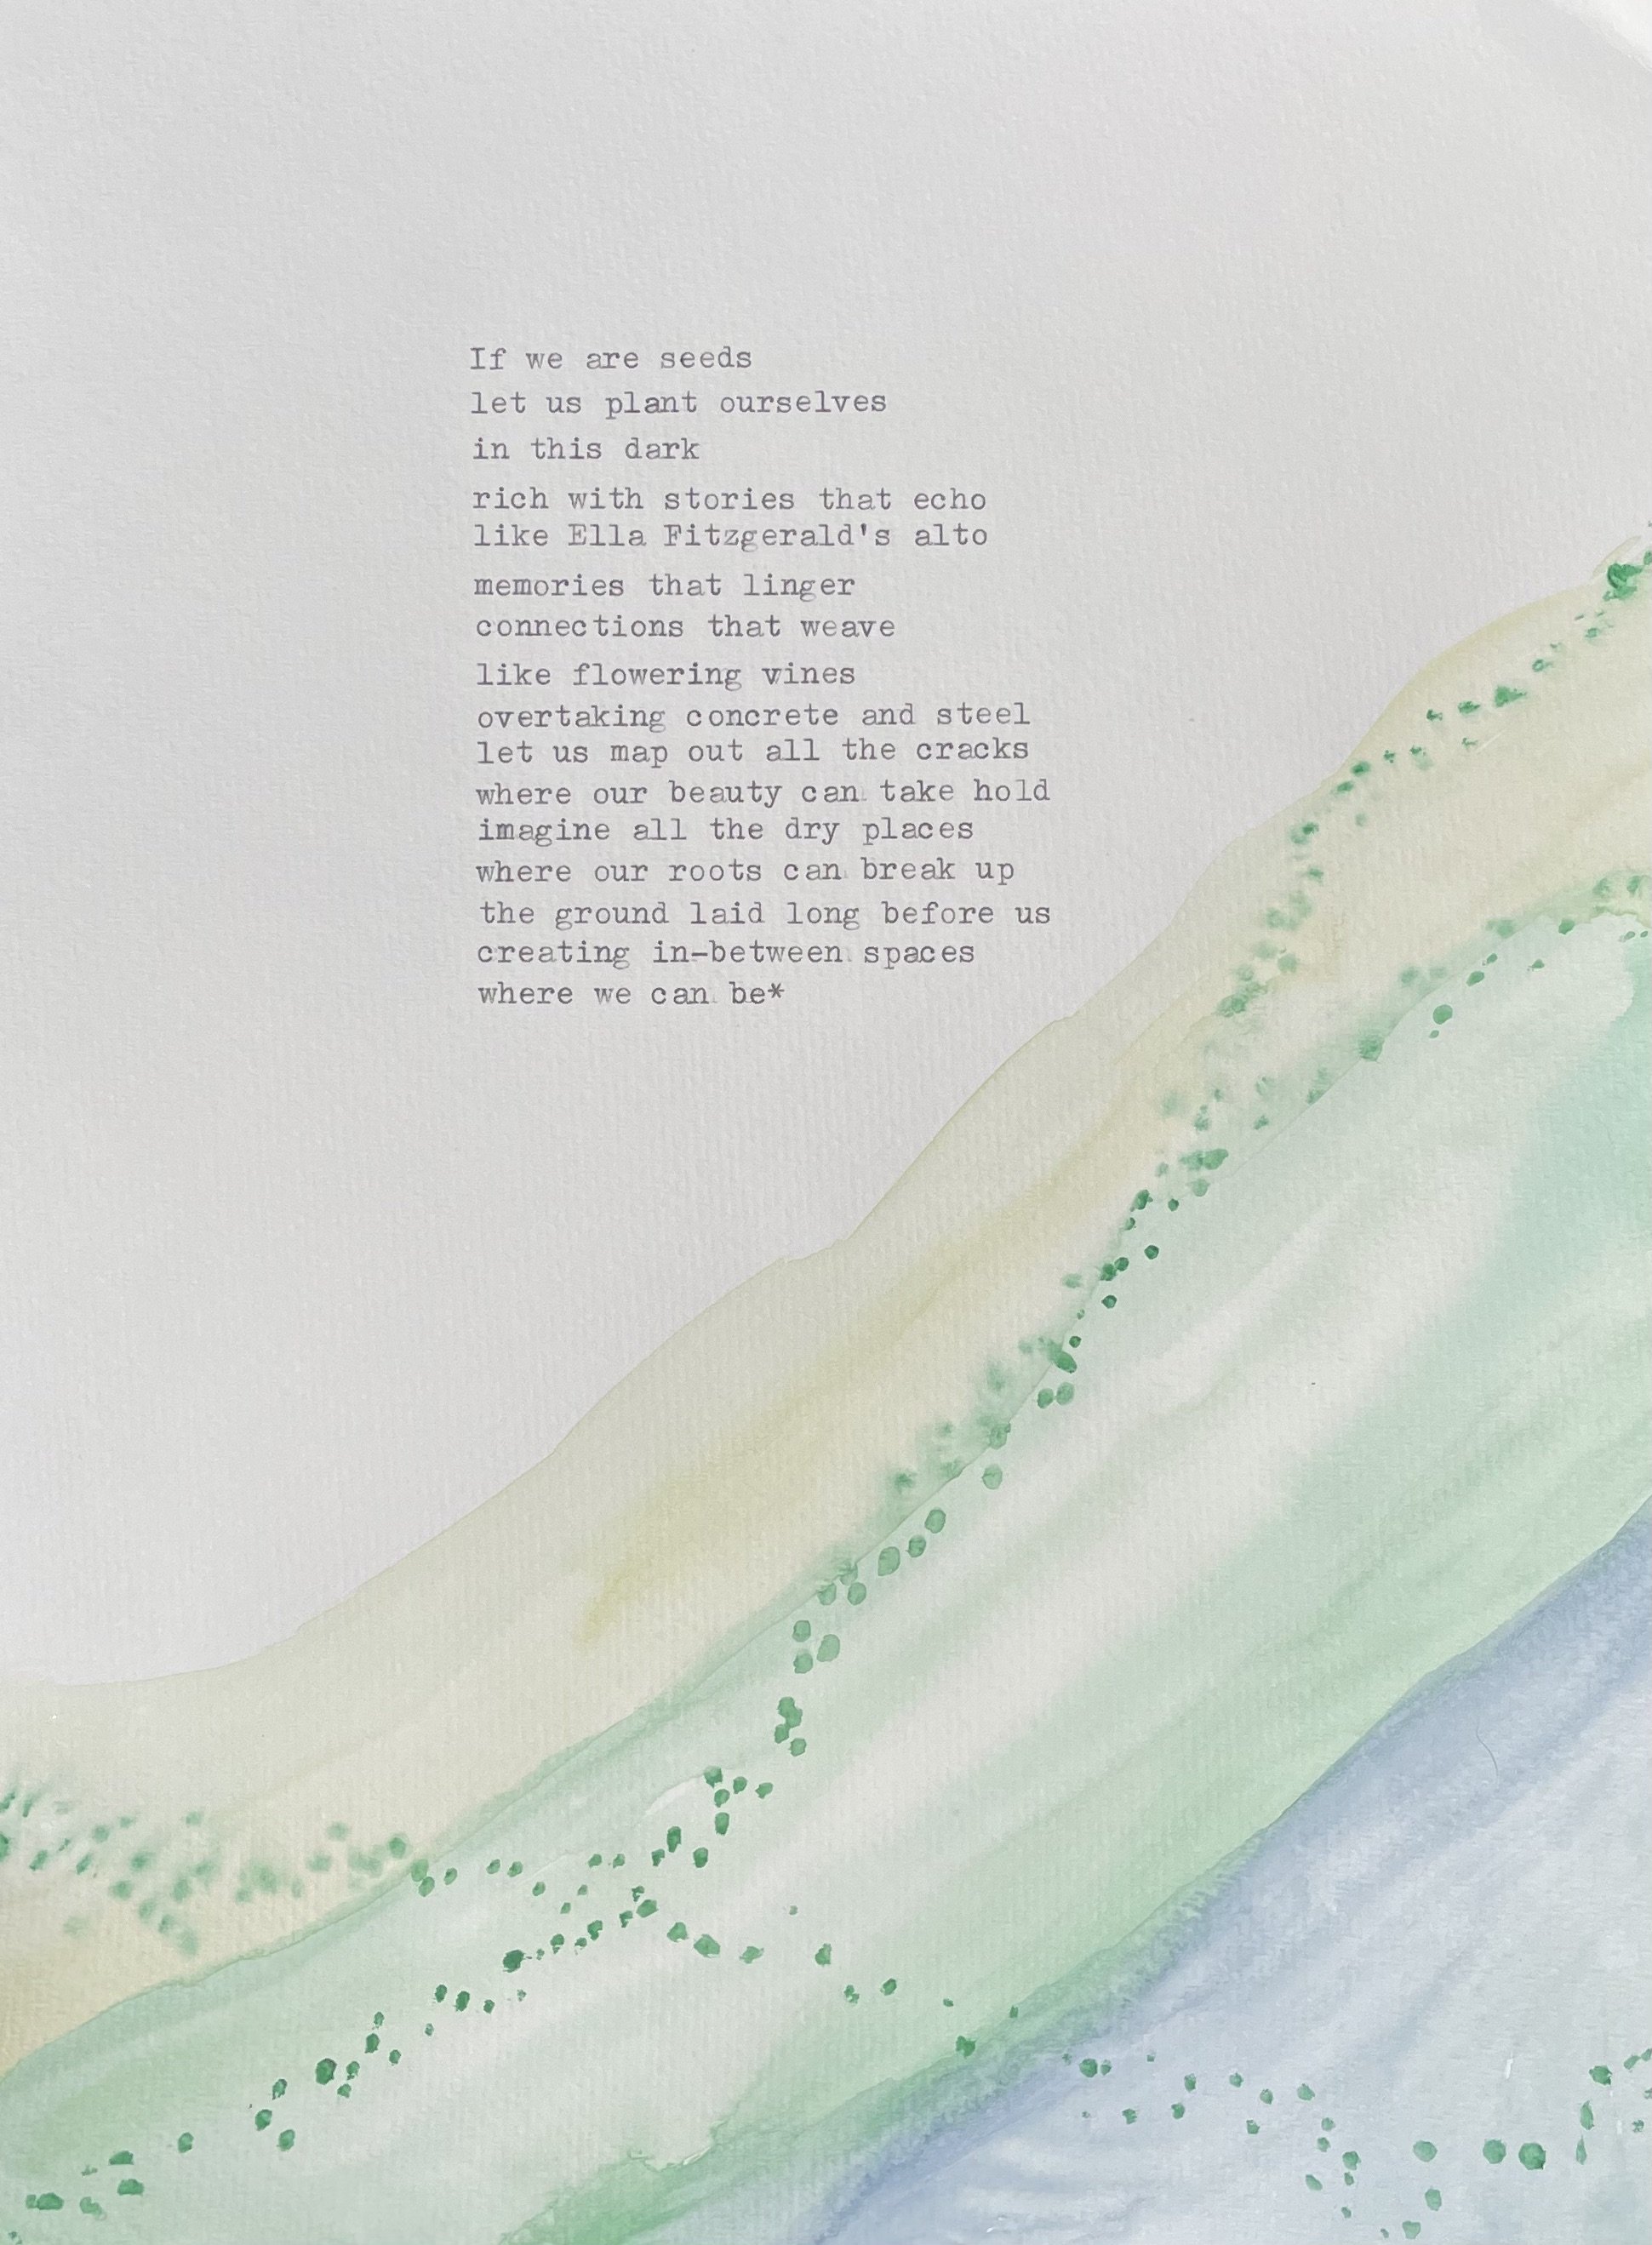 If we are seeds
let us plant ourselves
in this dark
rich with stories that echo
like Ella Fitzgerald's alto
memories that linger
connections that weave
like flowering vines
overtaking concrete and steel
let us map out all the cracks
where our beauty can take hold
imagine all the dry places
where our roots can break up
the ground laid long before us
creating in-between spaces
where we can be*